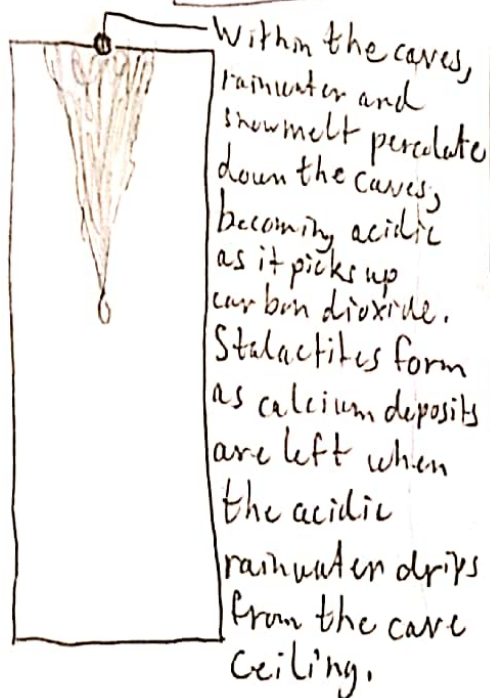 Within the caves,
rainwater and
snowmelt percolate
down the caves,
becoming acidic
as it picks up
carbon dioxide.
Stalactites form
as calcium deposits
are left when
the acidic
rainwater drips
from the cave
ceiling.